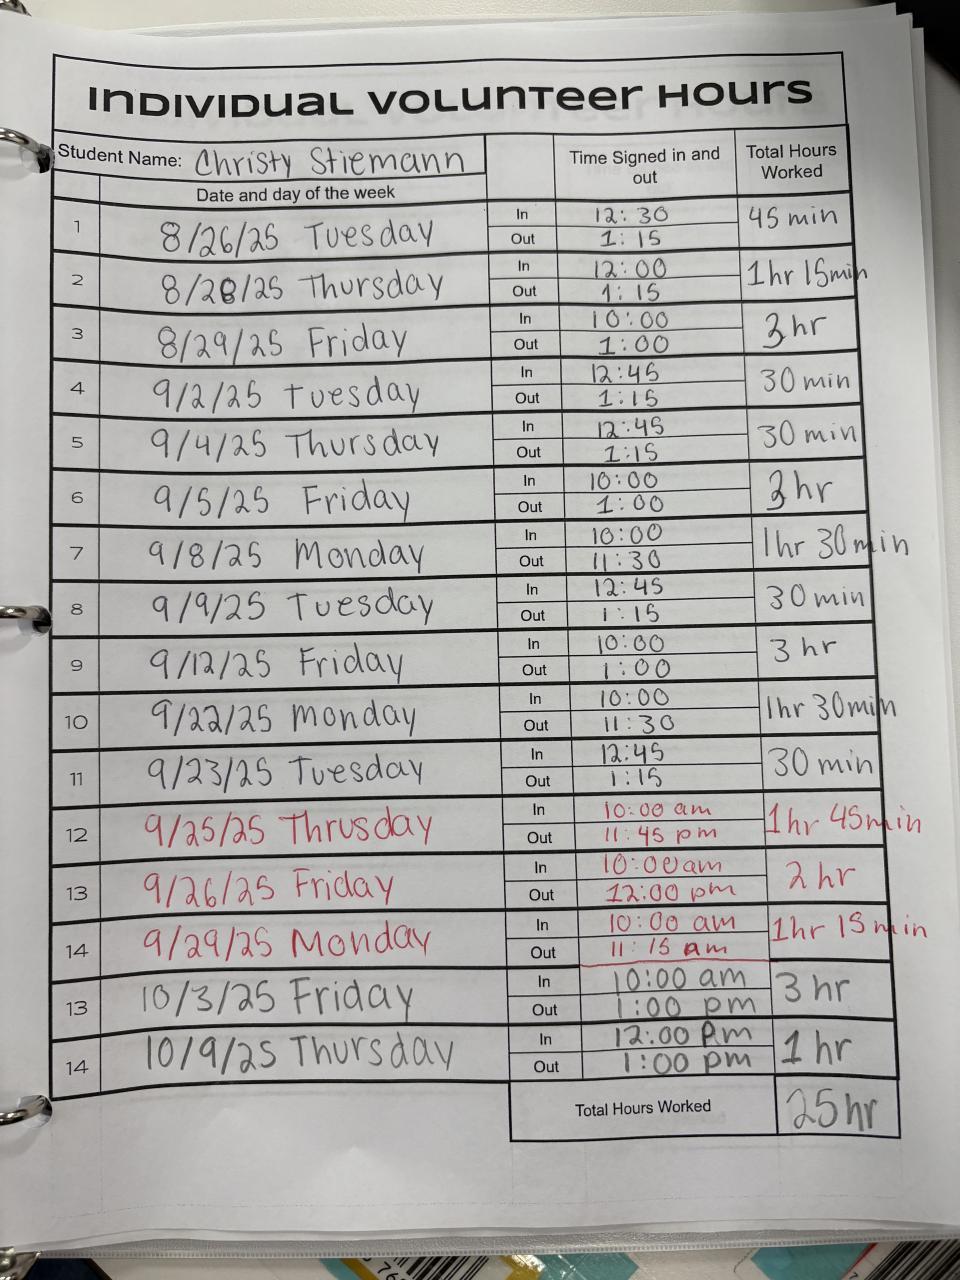 INDIVIDUAL VOLUNTEER HOURS
Student Name: Christy Stiemann
Time Signed in and out
Total Hours Worked
Date and day of the week
1 8/26/25 Tuesday In 12:30 45 min
Out 1:15
2 8/28/25 Thursday In 12:00 1hr 15min
Out 1:15
3 8/29/25 Friday In 10:00 3 hr
Out 1:00
4 9/2/25 Tuesday In 12:45 30 min
Out 1:15
5 9/4/25 Thursday In 12:45 30 min
Out 1:15
6 9/5/25 Friday In 10:00 3 hr
Out 1:00
7 9/8/25 Monday In 10:00 1hr 30min
Out 11:30
8 9/9/25 Tuesday In 12:45 30 min
Out 1:15
9 9/12/25 Friday In 10:00 3 hr
Out 1:00
10 9/22/25 Monday In 10:00 1hr 30min
Out 11:30
11 9/23/25 Tuesday In 12:45 30 min
Out 1:15
12 9/25/25 Thrusday In 10:00 am 1hr 45min
Out 11:45 pm
13 9/26/25 Friday In 10:00am 2 hr
Out 12:00 pm
14 9/29/25 Monday In 10:00 am 1hr 15min
Out 11:15 am
13 10/3/25 Friday In 10:00 am 3 hr
Out 1:00 pm
14 10/9/25 Thursday In 12:00 pm 1 hr
Out 1:00 pm
Total Hours Worked 25hr